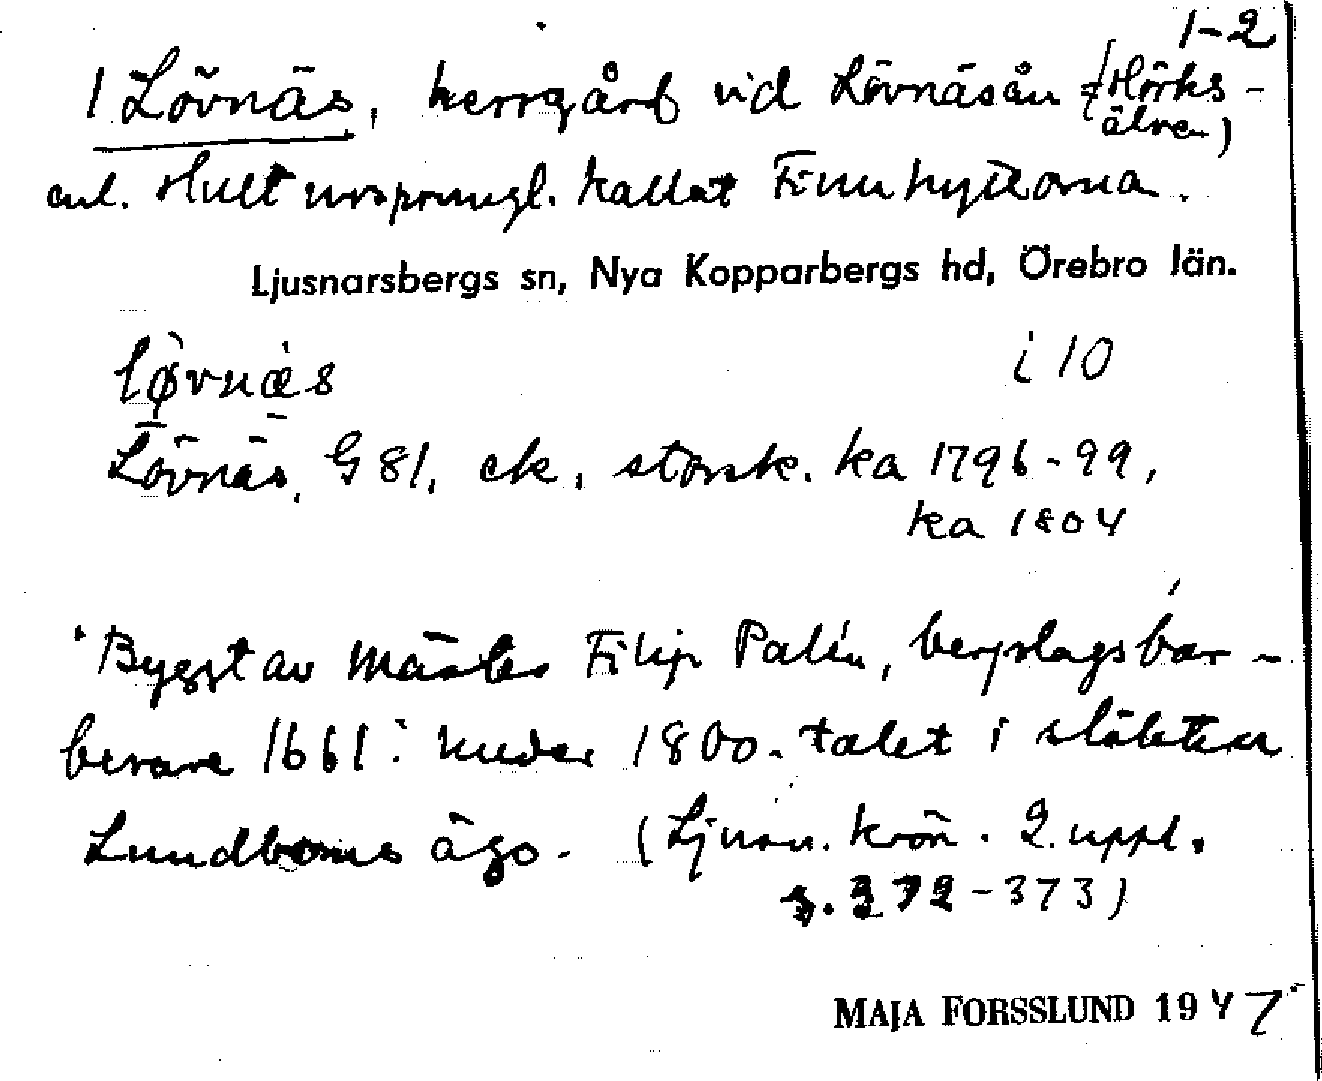 1-2
1 Lövnäs, herrgård vid Lövnäsån (Hörks-
älven)
enl. Hult ursprungl. kallat Finnhyttorna.
Ljusnarsbergs sn, Nya Kopparbergs hd, Örebro län.
lø̀vnæ̀s i 10
Lövnäs, G 81, ek, storsk. ka 1796-99,
ka 1804
Byggt av Mäster Filip Palin, bergslagsbar-
berare 1661. Under 1800-talet i släkten
Lundboms ägo. (Ljusn. krön. 2. uppl.
s. 372-373)
MAJA FORSSLUND 1947